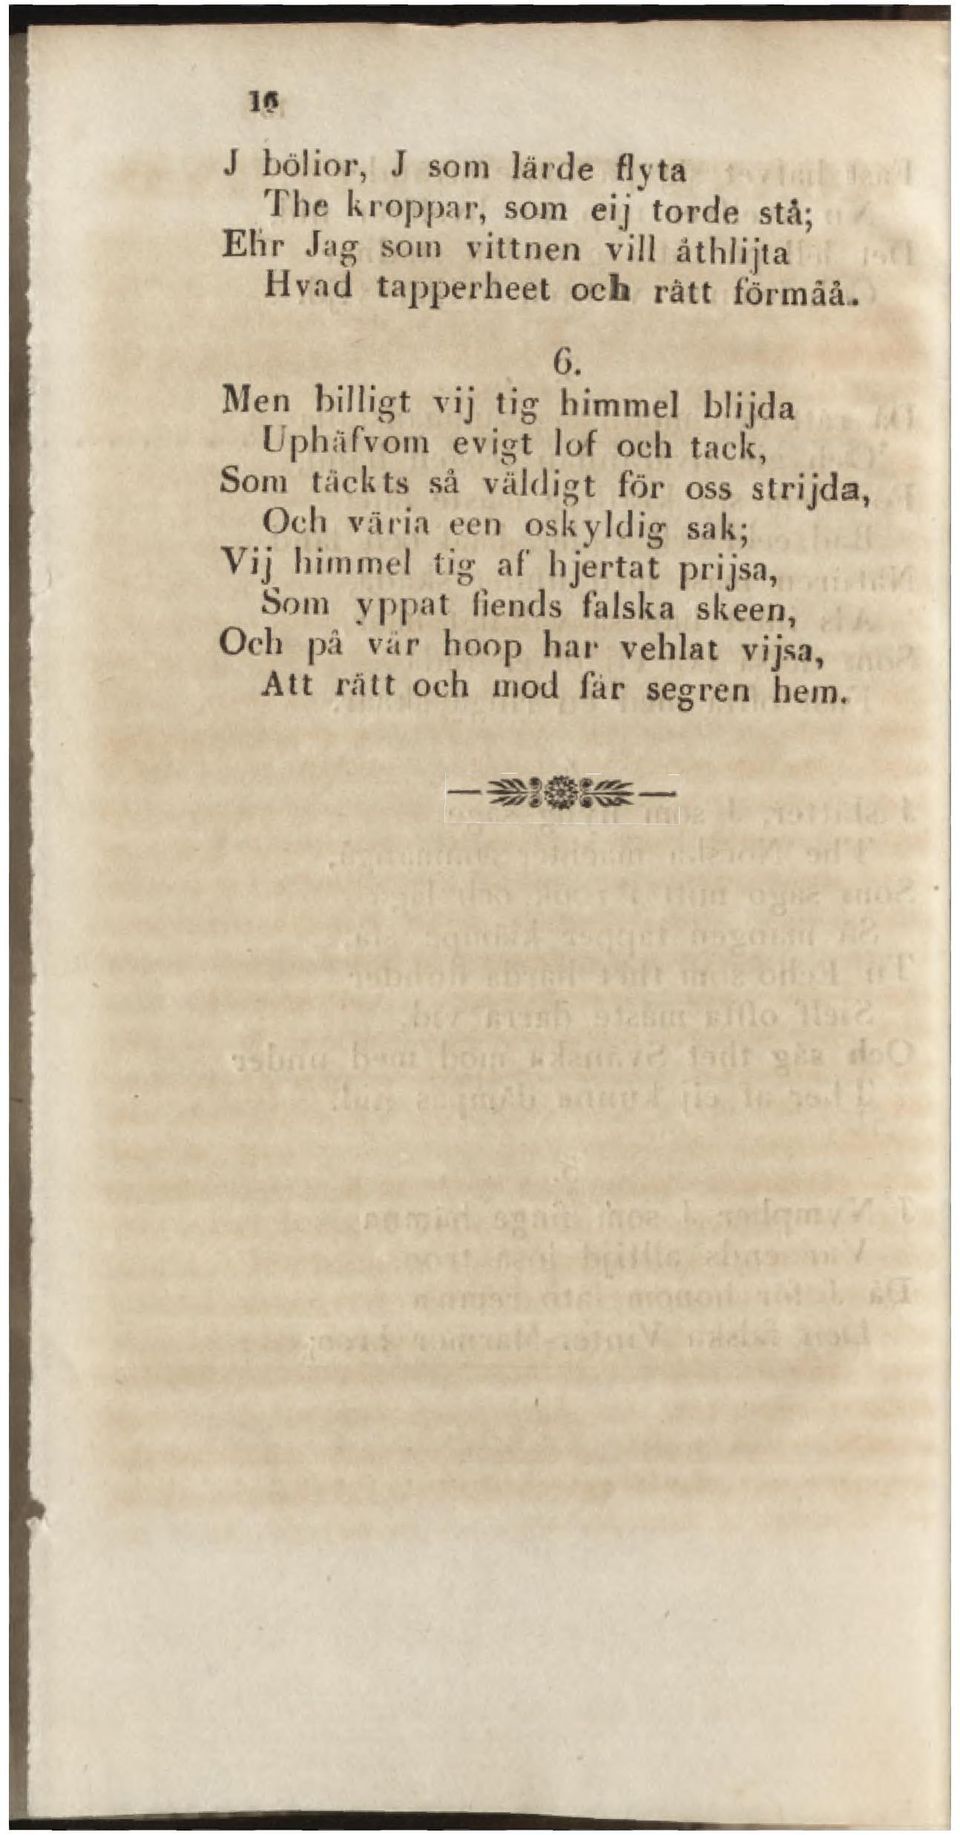 16
J böljor, J som lärde flyta
The kroppar, som eij torde stå;
Ehr Jag som vittnen vill åthlijta
Hvad tapperheet och rätt förmåå.
6.
Men billigt vij tig himmel blijda
Uphäfvom evigt lof och tack,
Som täckts så väldigt för oss strijda,
Och väria een oskyldig sak;
Vij himmel tig af hjertat prijsa,
Som yppat fiends falska skeen,
Och på vår hoop har vehlat vijsa,
Att rätt och mod får segren hem.